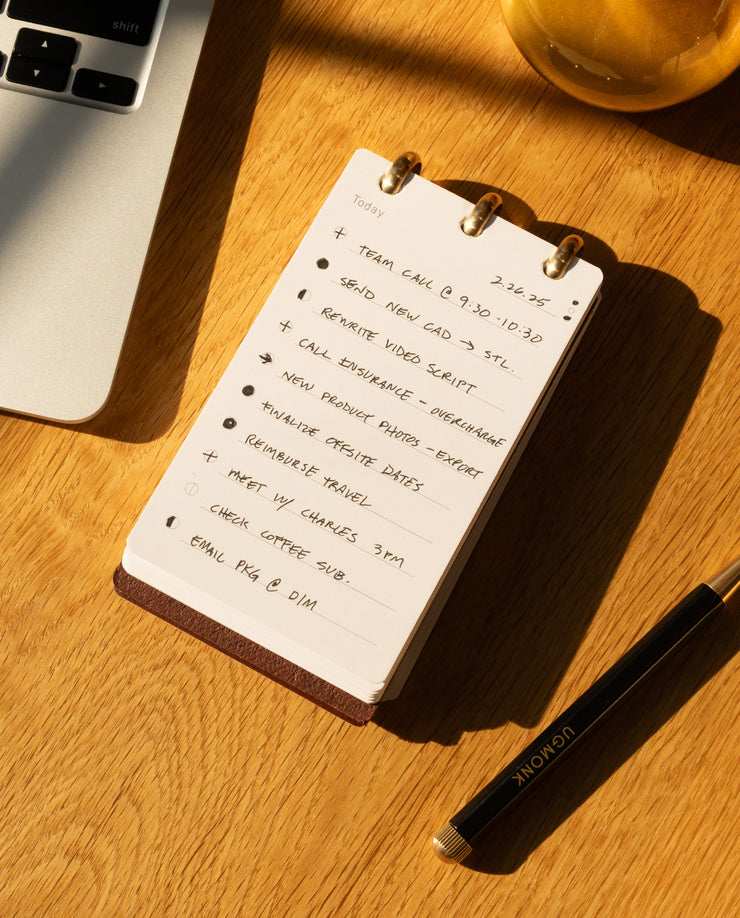 shift
Today
2.26.25
TEAM CALL @ 9:30-10:30
SEND NEW CAD → STL.
REWRITE VIDEO SCRIPT
CALL INSURANCE - OVERCHARGE
NEW PRODUCT PHOTOS - EXPORT
FINALIZE OFFSITE DATES
REIMBURSE TRAVEL
MEET W/ CHARLES 3PM
CHECK COFFEE SUB.
EMAIL PKG @ DIM
UGMONK